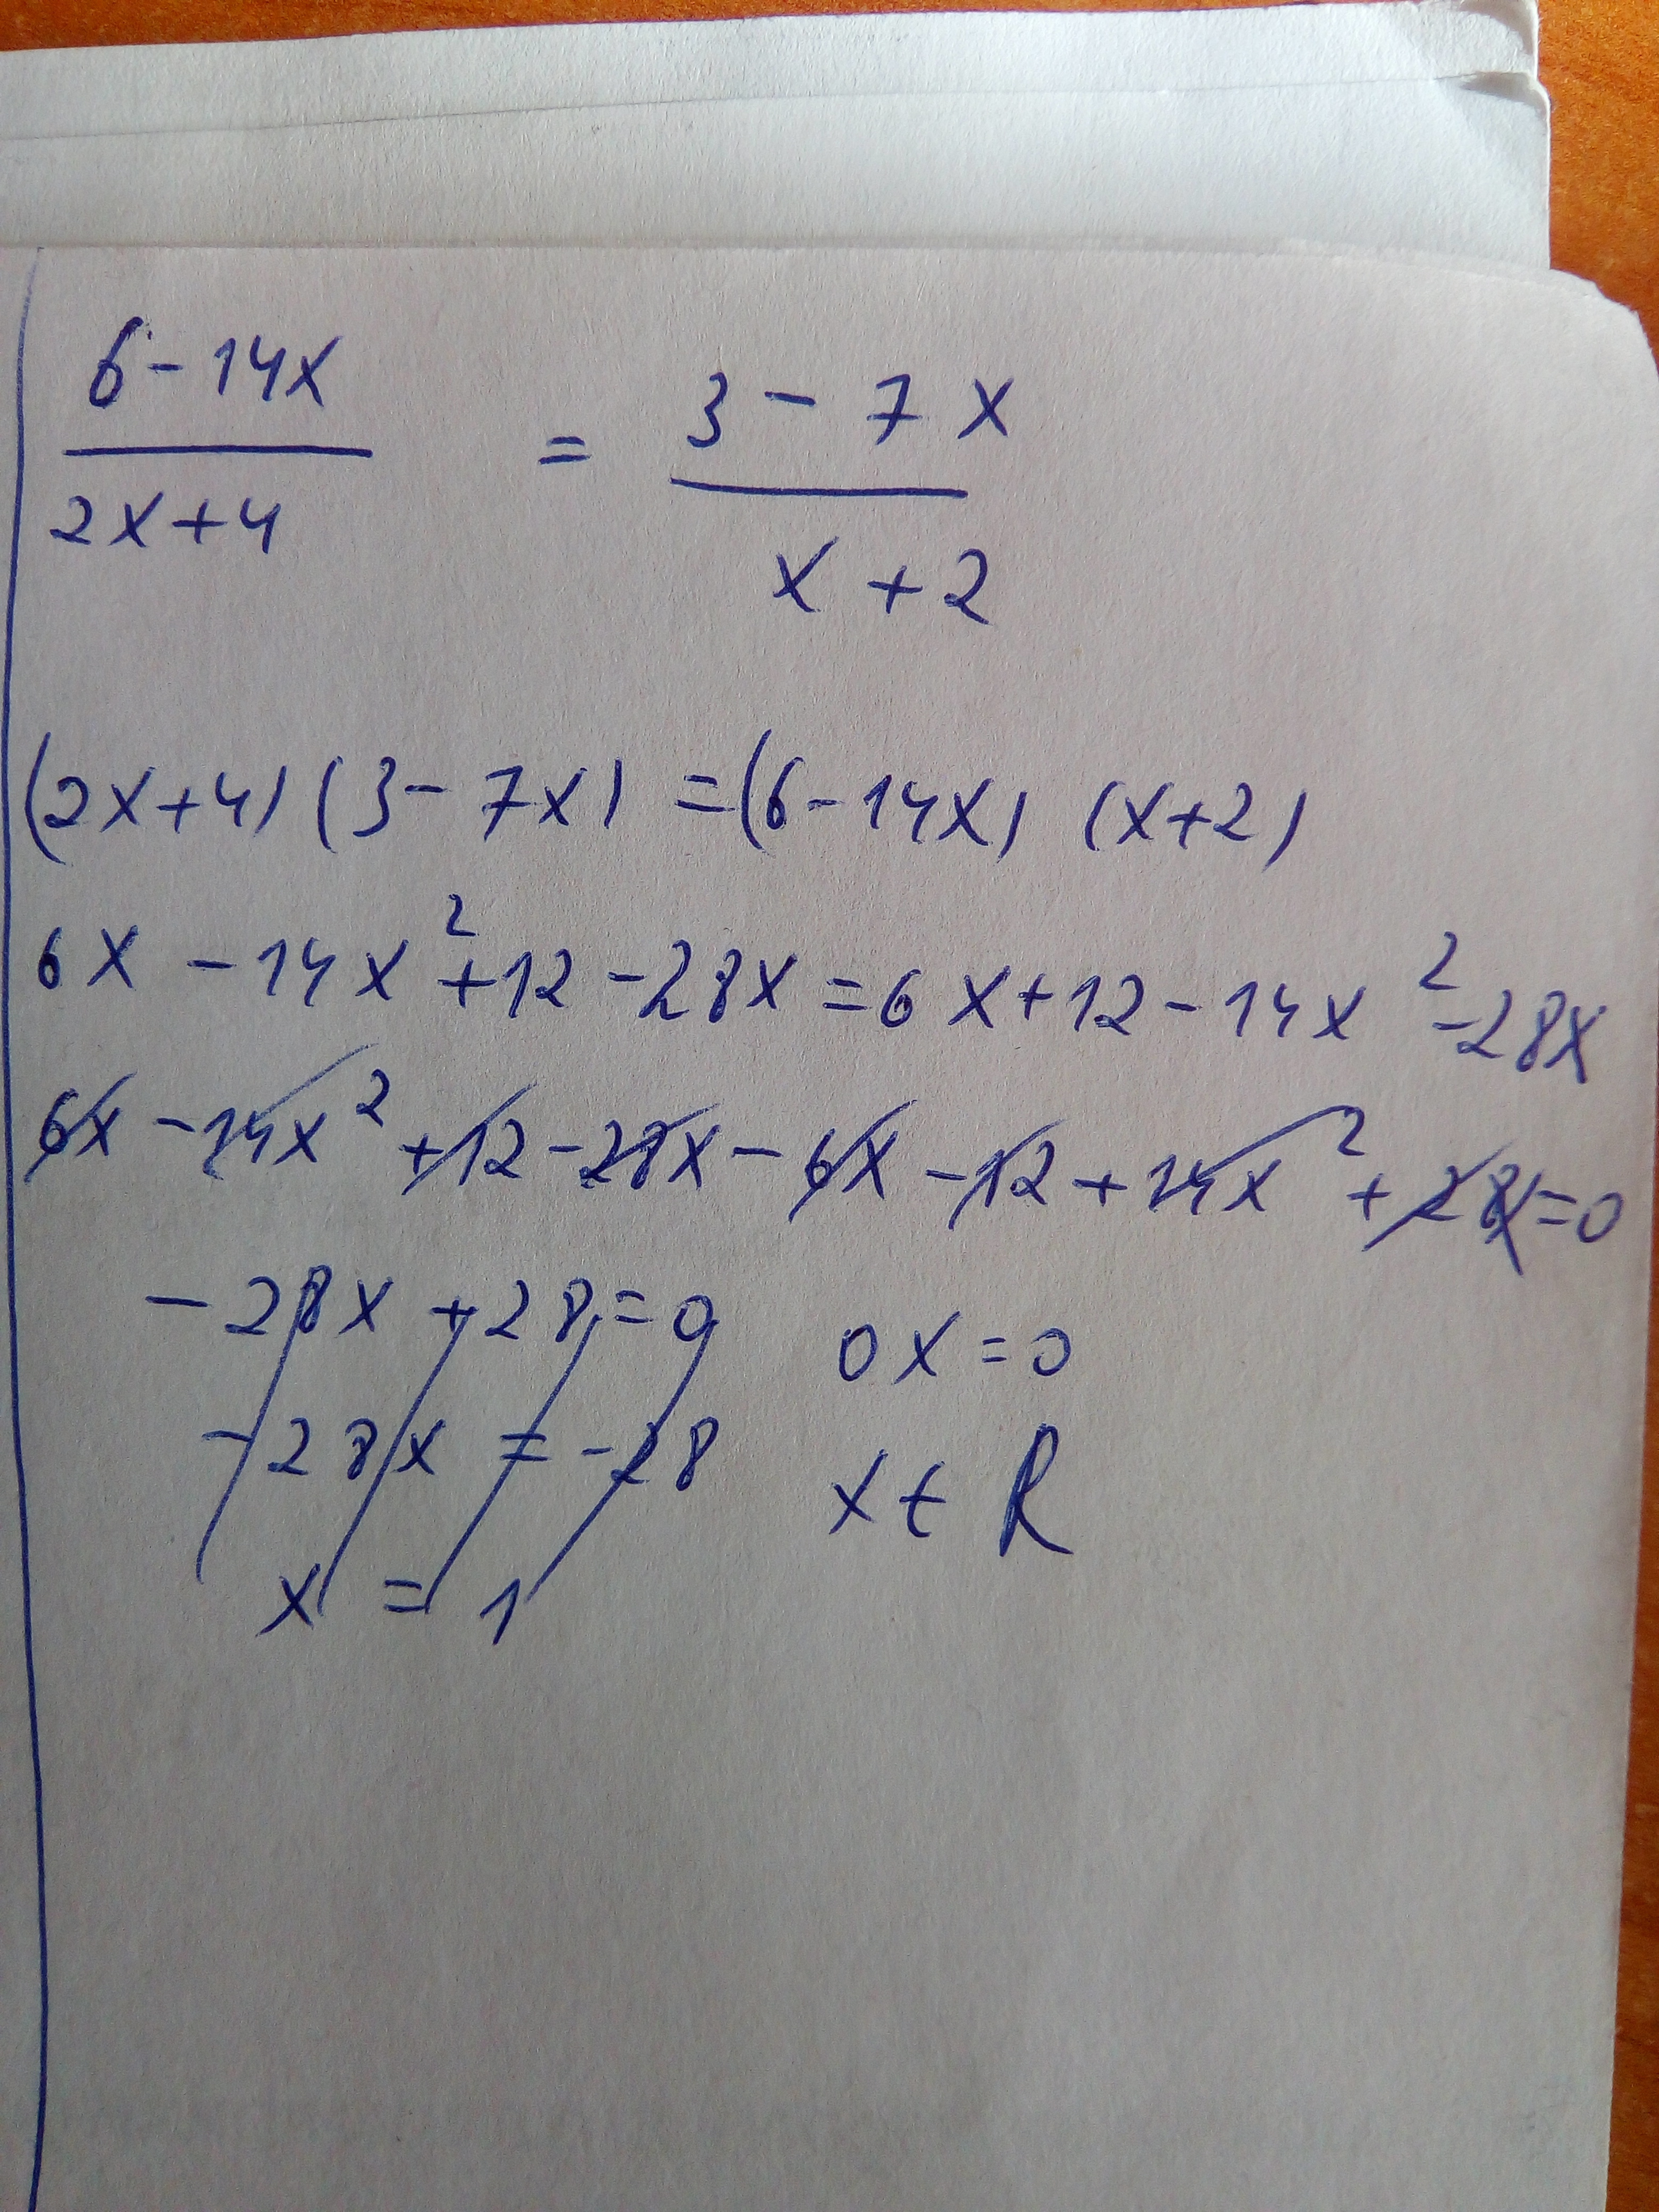 6 - 14x
2x+4
=
3 - 7x
x + 2
(2x+4) (3 - 7x) = (6 - 14x) (x+2)
6x - 14x² + 12 - 28x = 6x + 12 - 14x² - 28x
6x - 14x² + 12 - 28x - 6x - 12 + 14x² + 28x = 0
- 28x + 28 = 0 0x = 0
- 28x = - 28 x ∈ R
x = 1